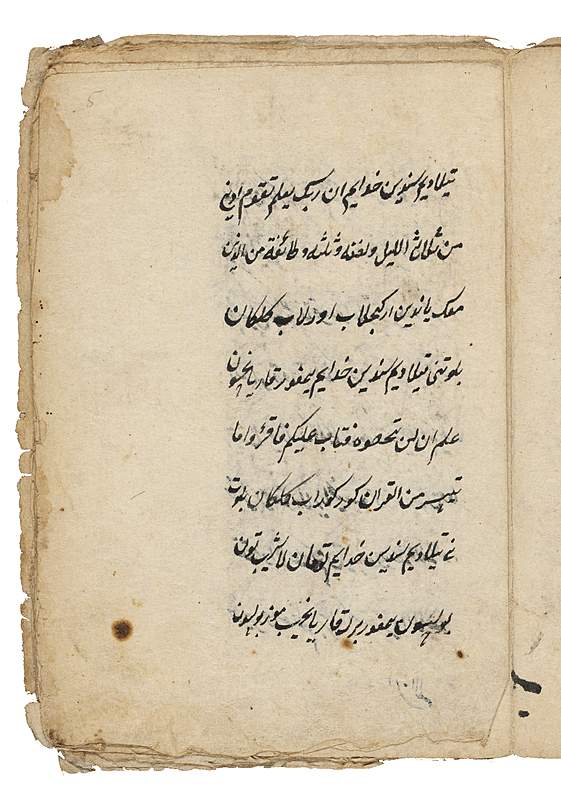 5
تیلادیم سنوین خدایم ان ربک یعلم تقوم ادنی
من ثلثی اللیل ونصفه وثلثه وطائفة من الذین
معک یانوین ارکجلاب اورلاب کلکان
بلوتنی تیلادیم سنوین خدایم یمغور قار یاغسون
علم ان لن تحصوه فتاب علیکم فاقرؤا ما
تیسر من القران کورکوراب کلکان بلوت
نی تیلادیم سنوین خدایم
بولسون یمغور برله قار یاغیب موز بولسون